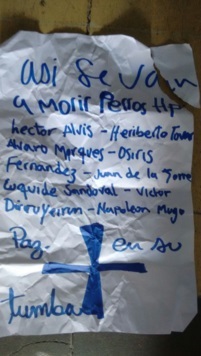 asi se van
a morir Perros HP
hector Alvis - Heriberto Tovar
Alvaro Marques - Osiris
Fernandez - Juan de la Torre
Enquide Sandoval - Victor
- Napoleon Mugo
Paz en su
tumba